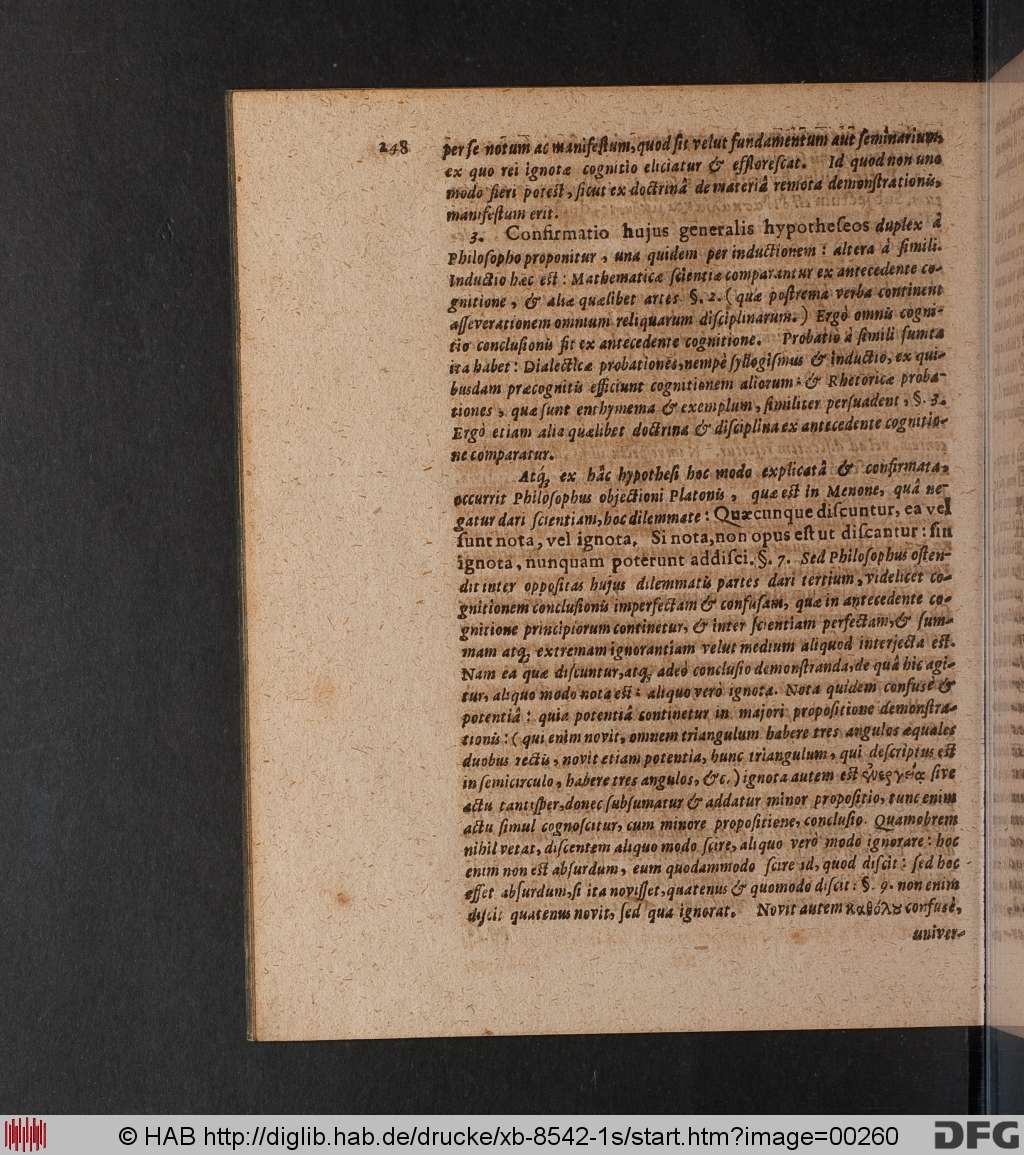 248
per se notum ac manifestum, quod sit velut fundamentum aut seminarium,
ex quo rei ignotæ cognitio eliciatur & efflorescat. Id quod non uno
modo fieri potest, sicut ex doctrinâ de materiâ remota demonstrationis,
manifestum erit.
3. Confirmatio hujus generalis hypotheseos duplex â
Philosopho proponitur, una quidem per inductionem: altera à simili.
Inductio hæc est: Mathematicæ scientiæ comparantur ex antecedente co-
gnitione, & aliæ quælibet artes §. 2. (quæ postrema verba continent
asseverationem omnium reliquarum disciplinarum.) Ergò omnis cogni-
tio conclusionis fit ex antecedente cognitione. Probatio à simili sumta
ita habet: Dialecticæ probationes, nempè syllogismus & inductio, ex qui-
busdam præcognitis efficiunt cognitionem aliorum: & Rhetoricæ proba-
tiones, quæ sunt enthymema & exemplum, similiter persuadent, §. 3.
Ergò etiam alia quælibet doctrina & disciplina ex antecedente cognitio-
ne comparatur.
Atq; ex hâc hypothesi hoc modo explicatâ & confirmata,
occurrit Philosophus objectioni Platonis, quæ est in Menone, quâ ne-
gatur dari scientiam, hoc dilemmate: Quæcunque discuntur, ea vel
sunt nota, vel ignota. Si nota, non opus est ut discantur: sin
ignota, nunquam poterunt addisci. §. 7. Sed Philosophus osten-
dit inter oppositas hujus dilemmatis partes dari tertium, videlicet co-
gnitionem conclusionis imperfectam & confusam, quæ in antecedente co-
gnitione principiorum continetur, & inter scientiam perfectam, & sum-
mam atq; extremam ignorantiam velut medium aliquod interjecta est.
Nam ea quæ discuntur, atq; adeò conclusio demonstranda, de quâ hic agi-
tur, aliquo modo nota est: aliquo verò ignota. Nota quidem confusè &
potentiâ: quia potentiâ continetur in majori propositione demonstra-
tionis: (qui enim novit, omnem triangulum habere tres angulos æquales
duobus rectis, novit etiam potentia, hunc triangulum, qui descriptus est
in semicirculo, habere tres angulos, &c.) ignota autem est ἐνεργείᾳ sive
actu tantisper, donec subsumatur & addatur minor propositio, tunc enim
actu simul cognoscitur, cum minore propositiene, conclusio. Quamobrem
nihil vetat, discentem aliquo modo scire, aliquo verò modo ignorare: hoc
enim non est absurdum, eum quodammodo scire id, quod discit: sed hoc
esset absurdum, si ita novisset, quatenus & quomodo discit: §. 9. non enim
discit quatenus novit, sed qua ignorat. Novit autem καθόλου confusè,
univer-
© HAB http://diglib.hab.de/drucke/xb-8542-1s/start.htm?image=00260
DFG